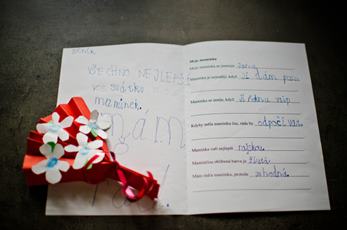 VŠECHNO NEJLEPŠÍ
ke svátku
maminek.
mám
Moje maminka
Moje maminka se jmenuje Jana
Maminka je nejraději, když jí dám pusu
Maminka se zlobí, když
Kdyby měla maminka čas, ráda by odpočívala
Maminka vaří nejlépe rajskou
Maminčina oblíbená barva je žlutá
Mám ráda maminku, protože je hodná.